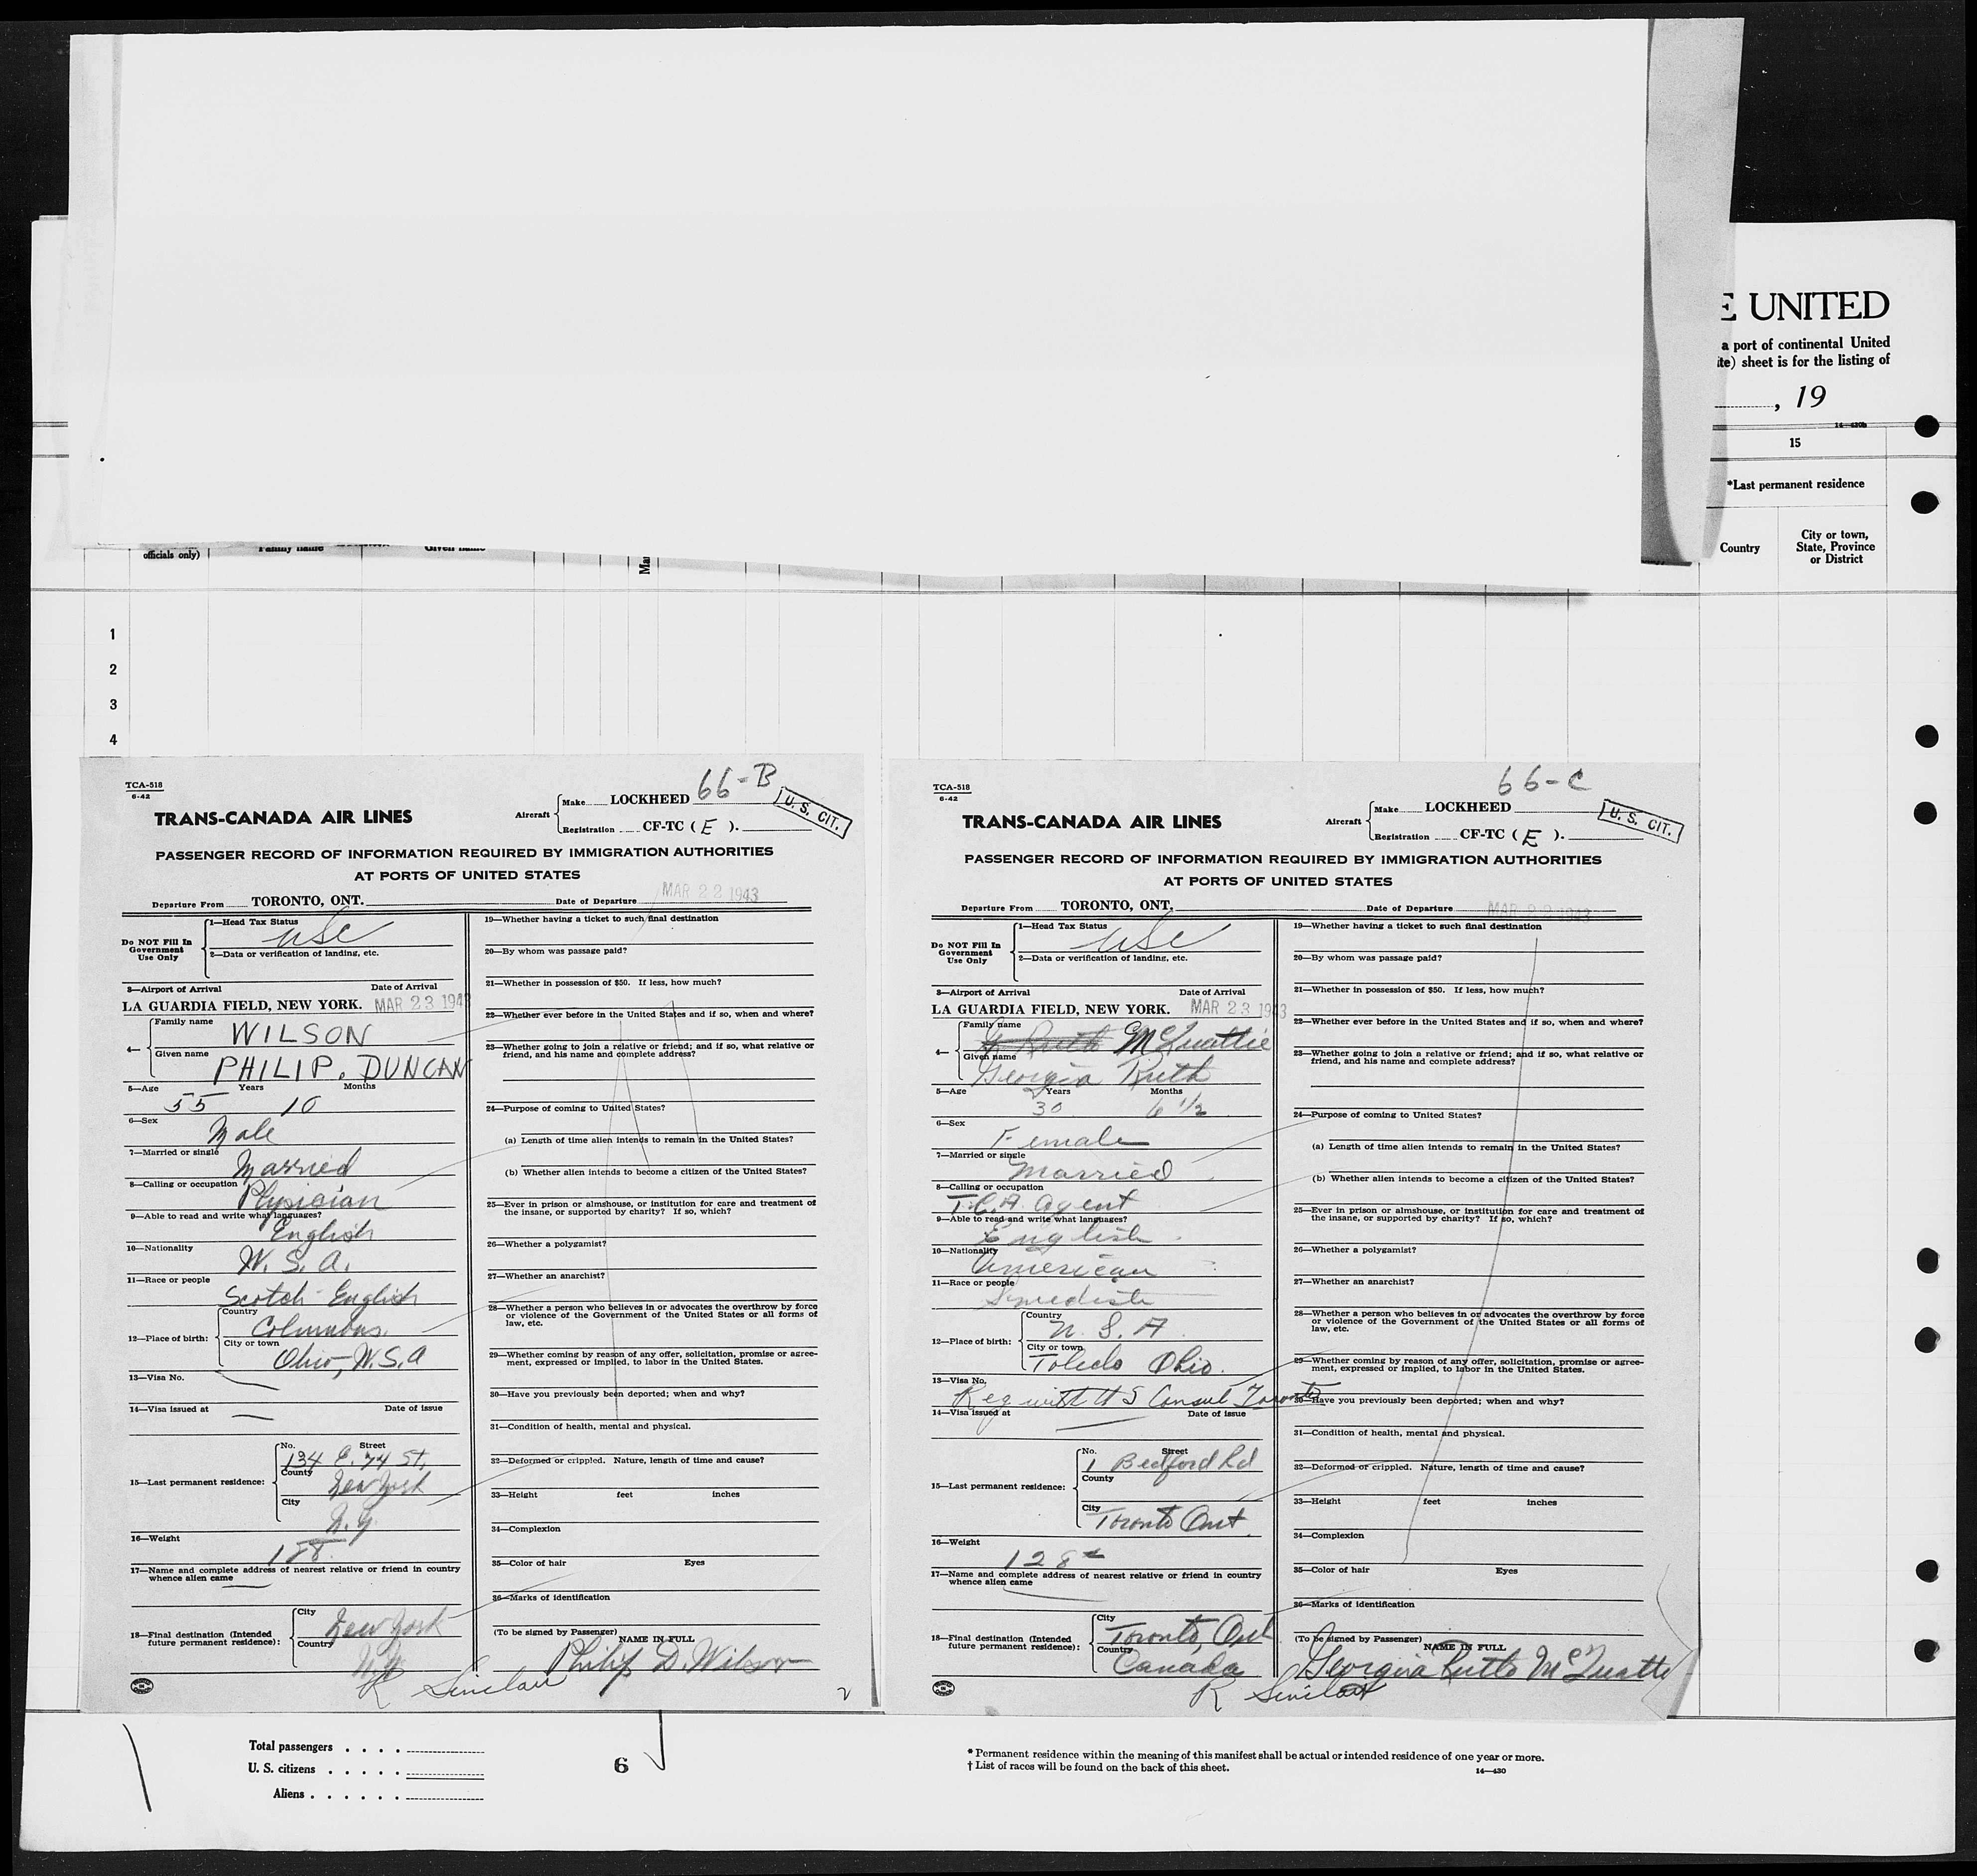 E UNITED
a port of continental United
ite) sheet is for the listing of
, 19
14—430b
15
*Last permanent residence
Country
City or town,
State, Province
or District
officials only)
Family name
Given name
1
2
3
4
TCA-518
6-42
TRANS-CANADA AIR LINES
66-B
Aircraft
Make LOCKHEED
Registration CF-TC ( E ).
U. S. CIT.
PASSENGER RECORD OF INFORMATION REQUIRED BY IMMIGRATION AUTHORITIES
AT PORTS OF UNITED STATES
Departure From TORONTO, ONT. Date of Departure MAR 22 1943
Do NOT Fill In
Government
Use Only
1—Head Tax Status
USC
2—Data or verification of landing, etc.
3—Airport of Arrival Date of Arrival
LA GUARDIA FIELD, NEW YORK. MAR 23 1943
4— Family name
WILSON
Given name
PHILIP. DUNCAN
5—Age Years Months
55 10
6—Sex
Male
7—Married or single
Married
8—Calling or occupation
Physician
9—Able to read and write what languages?
English
10—Nationality
U. S. A.
11—Race or people
Scotch-English
12—Place of birth: Country
Columbus
City or town
Ohio, U.S.A
13—Visa No.
14—Visa issued at Date of issue
15—Last permanent residence:
No. Street
134 E. 74 St,
County
New York
City
N.Y.
16—Weight
188
17—Name and complete address of nearest relative or friend in country
whence alien came
18—Final destination (Intended
future permanent residence):
City
New York
Country
N.Y.
R Sinclair
19—Whether having a ticket to such final destination
20—By whom was passage paid?
21—Whether in possession of $50. If less, how much?
22—Whether ever before in the United States and if so, when and where?
23—Whether going to join a relative or friend; and if so, what relative or
friend, and his name and complete address?
24—Purpose of coming to United States?
(a) Length of time alien intends to remain in the United States?
(b) Whether alien intends to become a citizen of the United States?
25—Ever in prison or almshouse, or institution for care and treatment of
the insane, or supported by charity? If so, which?
26—Whether a polygamist?
27—Whether an anarchist?
28—Whether a person who believes in or advocates the overthrow by force
or violence of the Government of the United States or all forms of
law, etc.
29—Whether coming by reason of any offer, solicitation, promise or agree-
ment, expressed or implied, to labor in the United States.
30—Have you previously been deported; when and why?
31—Condition of health, mental and physical.
32—Deformed or crippled. Nature, length of time and cause?
33—Height feet inches
34—Complexion
35—Color of hair Eyes
36—Marks of identification
(To be signed by Passenger)
NAME IN FULL
Philip D. Wilson
2
TCA-518
6-42
TRANS-CANADA AIR LINES
66-C
Aircraft
Make LOCKHEED
Registration CF-TC ( E ).
U. S. CIT.
PASSENGER RECORD OF INFORMATION REQUIRED BY IMMIGRATION AUTHORITIES
AT PORTS OF UNITED STATES
Departure From TORONTO, ONT. Date of Departure MAR 22 1943
Do NOT Fill In
Government
Use Only
1—Head Tax Status
USC
2—Data or verification of landing, etc.
3—Airport of Arrival Date of Arrival
LA GUARDIA FIELD, NEW YORK. MAR 23 1943
4— Family name
McQuattie
Given name
Georgia Ruth
5—Age Years Months
30 6 1/2
6—Sex
Female
7—Married or single
Married
8—Calling or occupation
T.C.A. agent
9—Able to read and write what languages?
English
10—Nationality
American
11—Race or people
Swedish
12—Place of birth: Country
U. S. A
City or town
Toledo Ohio.
13—Visa No.
Reg with U S Consul Toronto
14—Visa issued at Date of issue
15—Last permanent residence:
No. Street
1 Bedford Rd
County
City
Toronto Ont.
16—Weight
128
17—Name and complete address of nearest relative or friend in country
whence alien came
18—Final destination (Intended
future permanent residence):
City
Toronto, Ont
Country
Canada
R Sinclair
19—Whether having a ticket to such final destination
20—By whom was passage paid?
21—Whether in possession of $50. If less, how much?
22—Whether ever before in the United States and if so, when and where?
23—Whether going to join a relative or friend; and if so, what relative or
friend, and his name and complete address?
24—Purpose of coming to United States?
(a) Length of time alien intends to remain in the United States?
(b) Whether alien intends to become a citizen of the United States?
25—Ever in prison or almshouse, or institution for care and treatment of
the insane, or supported by charity? If so, which?
26—Whether a polygamist?
27—Whether an anarchist?
28—Whether a person who believes in or advocates the overthrow by force
or violence of the Government of the United States or all forms of
law, etc.
29—Whether coming by reason of any offer, solicitation, promise or agree-
ment, expressed or implied, to labor in the United States.
30—Have you previously been deported; when and why?
31—Condition of health, mental and physical.
32—Deformed or crippled. Nature, length of time and cause?
33—Height feet inches
34—Complexion
35—Color of hair Eyes
36—Marks of identification
(To be signed by Passenger)
NAME IN FULL
Georgia Ruth McQuattie
Total passengers
U. S. citizens
Aliens
6
* Permanent residence within the meaning of this manifest shall be actual or intended residence of one year or more.
† List of races will be found on the back of this sheet.
14—430